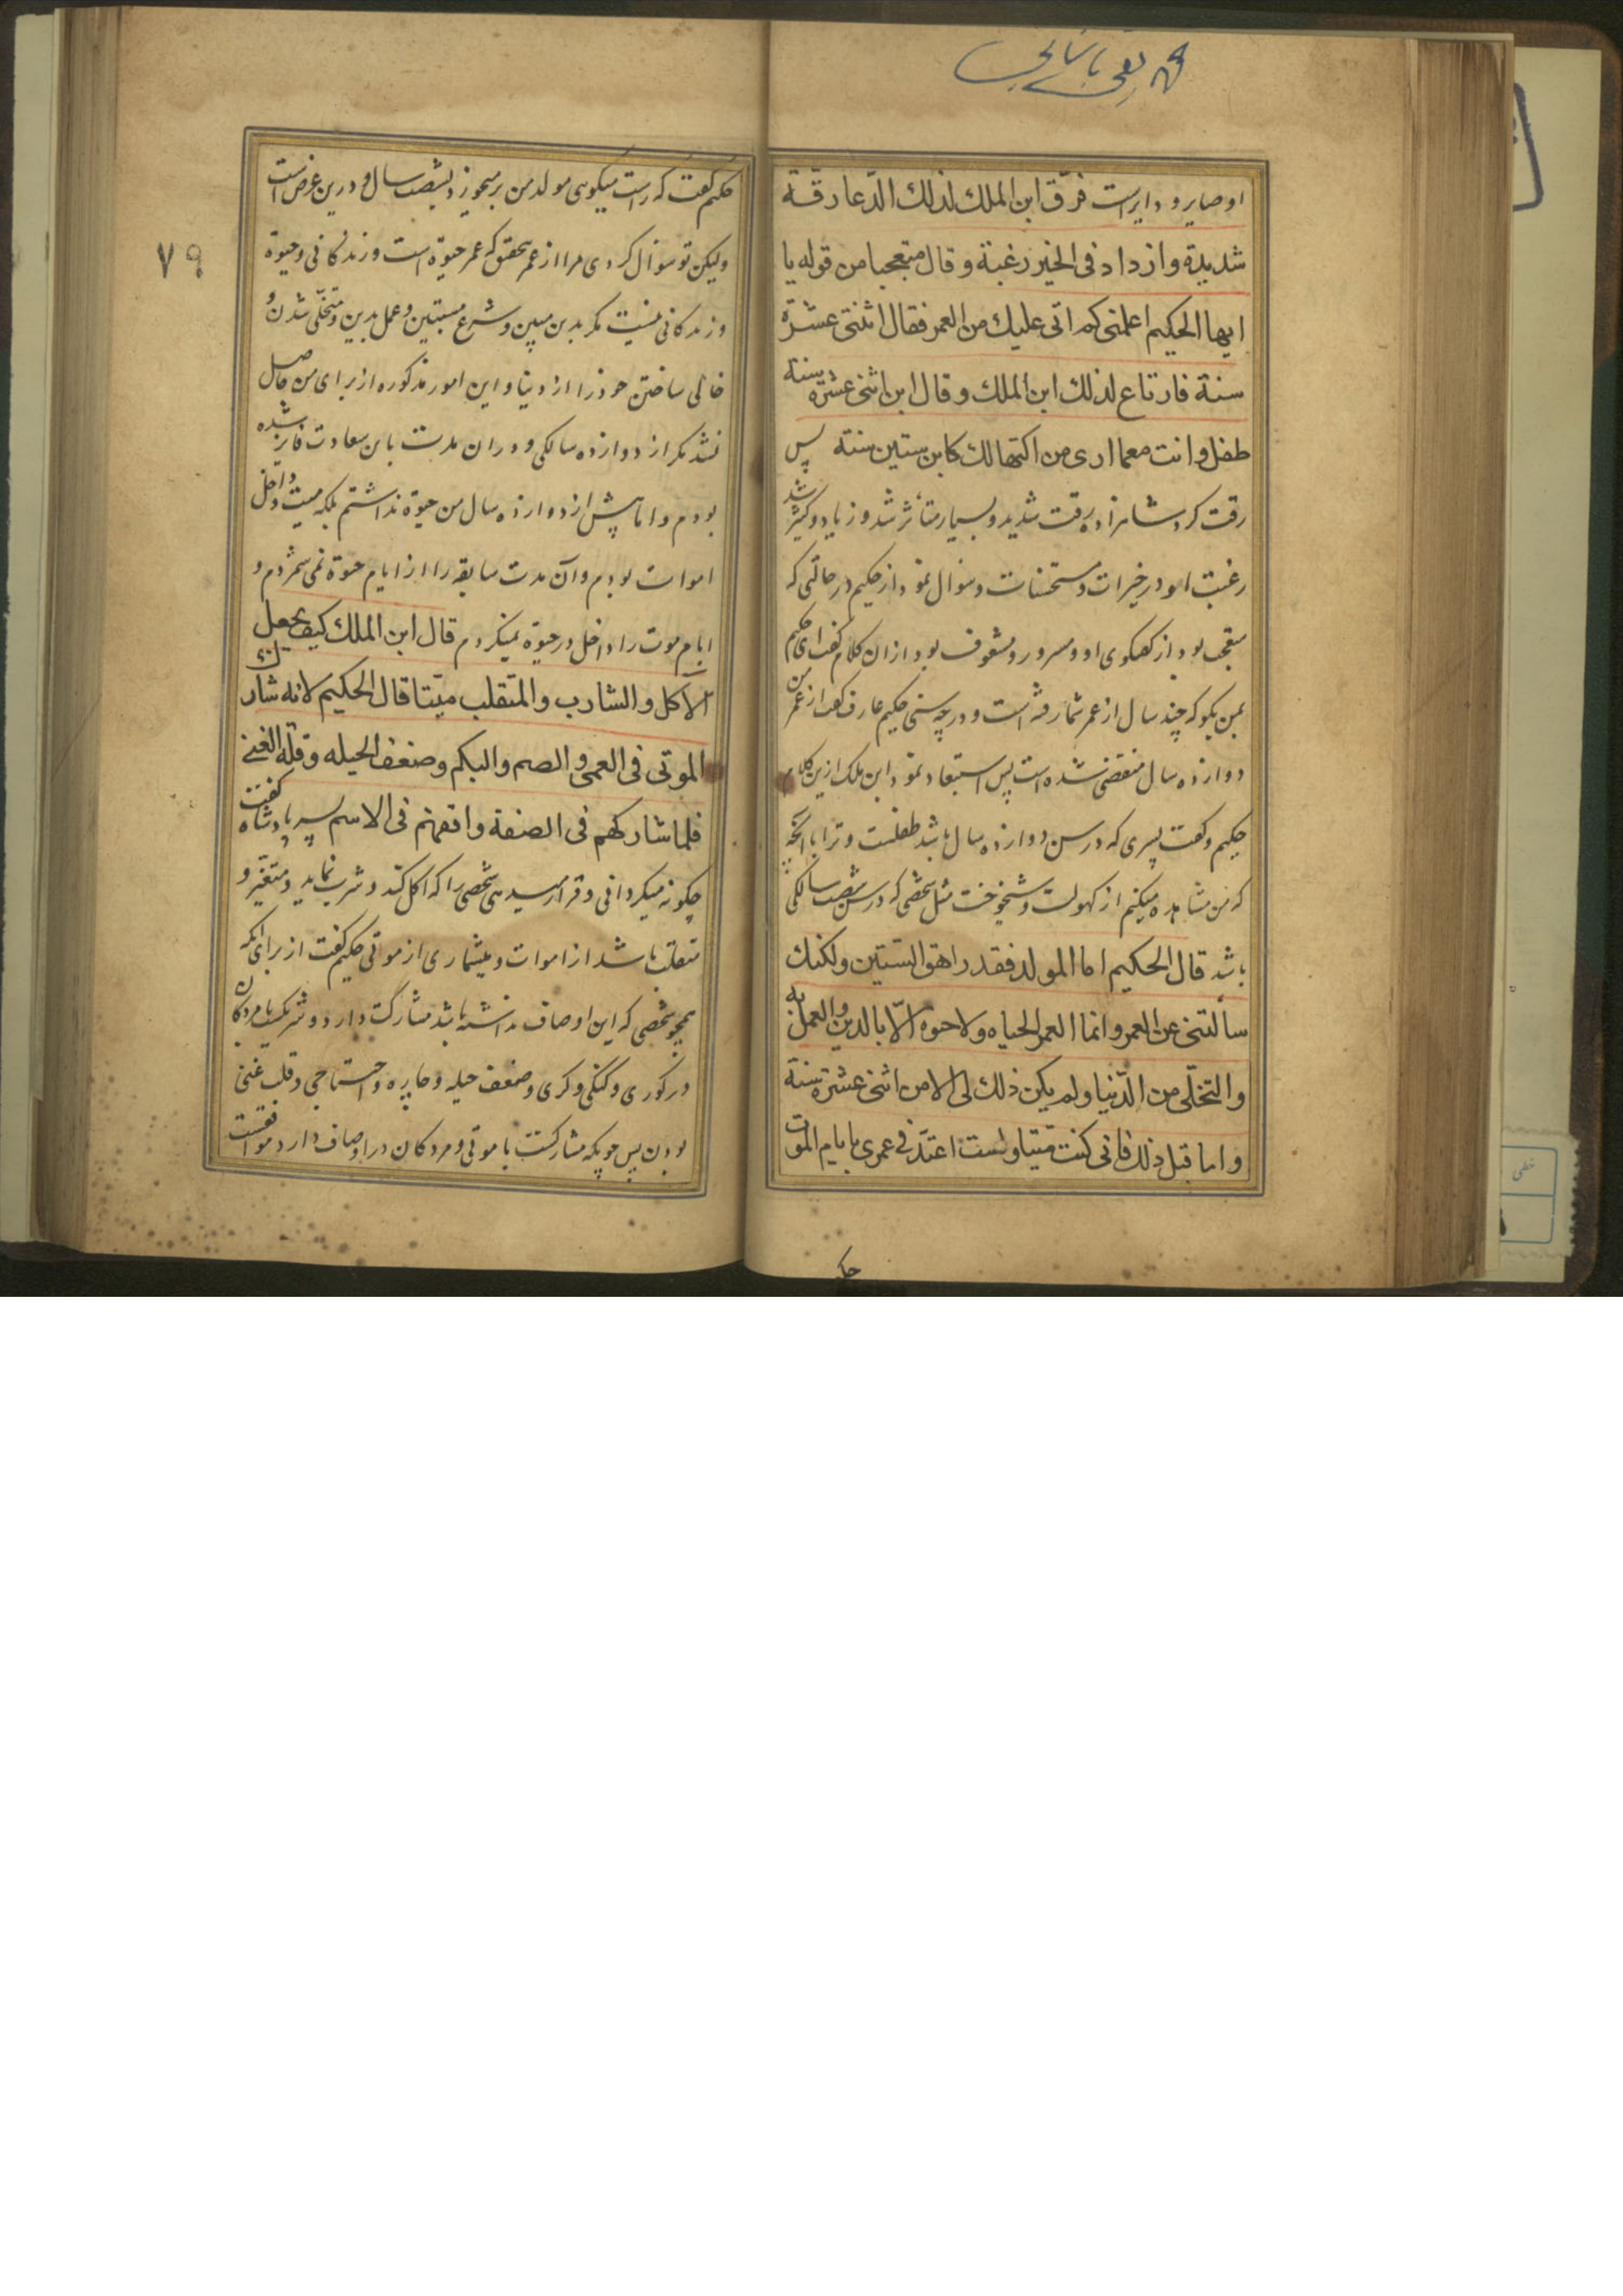 او صایر و دایر است فرّق ابن الملك لذلك الدّعا رقّة
شدیدة وازداد فی الخیر رغبة و قال متعجبا من قوله یا
ایها الحکیم اعلمنی کم اتی علیك من العمر فقال اثنتی عشرة
سنة فارتاع لذلك ابن الملك و قال ابن اثنی عشرة سنة
طفل وانت معما اری من اکتهالك کابن ستین سنة پس
رقت کرد شاهزاده رقت شدید و بسیار متأثر شد و زیاد و کثیر شد
رغبت او در خیرات و مستحسنات و سؤال نمود از حکیم در حالتی که
متعجب بود از گفتگوی او و مسرور و مشعوف بود از ان کلام گفت ای حکیم
بمن بگو که چند سال از عمر شما رفته است و در چه سنی حکیم عارف گفت از عمر من
دوازده سال منقضی شده است پس استبعاد نمود ابن ملک ازین کلام
حکیم و گفت پسری که در سن دوازده سال باشد طفلست و ترا با آنچه
که من مشاهده میکنم از کهولت و شیخوخت مثل شخصی که در سن شصت سالگی
باشد قال الحکیم اما المولد فقد راهق الستین ولکنك
سألتنی عن العمر و انما العمر الحیاه ولا حیوة الّا بالدین والعمل به
والتخلّی من الدّنیا ولم یکن ذلك لی الا من اثنی عشرة سنة
و اما قبل ذلك فانی کنت میّتا ولست اعتدّ فی عمری بایام الموت
حک
۷۹
حکیم گفت که راست میگوی مولد من بر میخورد بشصت سال و درین عرض است
ولیکن تو سؤال کردی مرا از عمر بتحقق که عمر حیوة است و زندگانی و حیوة
و زندگانی نیست مگر بدین مبین و شرع مستبین و عمل بدین و متخلّی شدن و
خالی ساختن خود را از دنیا و این امور مذکوره از برای من حاصل
نشد مگر از دوازده سالگی و در ان مدت باین سعادت فایز شده
بودم و اما پیش از دوازده سال من حیوة نداشتم بلکه میت و داخل
اموات بودم و آن مدت سابقه را از ایام حیوة نمی شمردم و
ایام موت را داخل در حیوة نمیکردم قال ابن الملك کیف یجعل
الآکل والشارب والمتقلب میّتا قال الحکیم لانه شارك
الموتی فی العمی والصم والبکم وضعف الحیله وقلّة الغنی
فلما شارکهم فی الصفة وافقهم فی الاسم پسر پادشاه گفت
چگونه میگردانی و قرار میدهی شخصی را که اکل کند و شرب نماید و متغیّر و
متقلب باشد از اموات و میشماری از موتی حکیم گفت از برای آنکه
همچو شخصی که این اوصاف داشته باشد مشارکت دارد و شریکست با مردگان
در کوری و گنگی و کری و ضعف حیله و چاره و احتیاجی و قلت غنی
بودن پس چونکه مشارکست با موتی و مردگان در اوصاف دارد موافقست